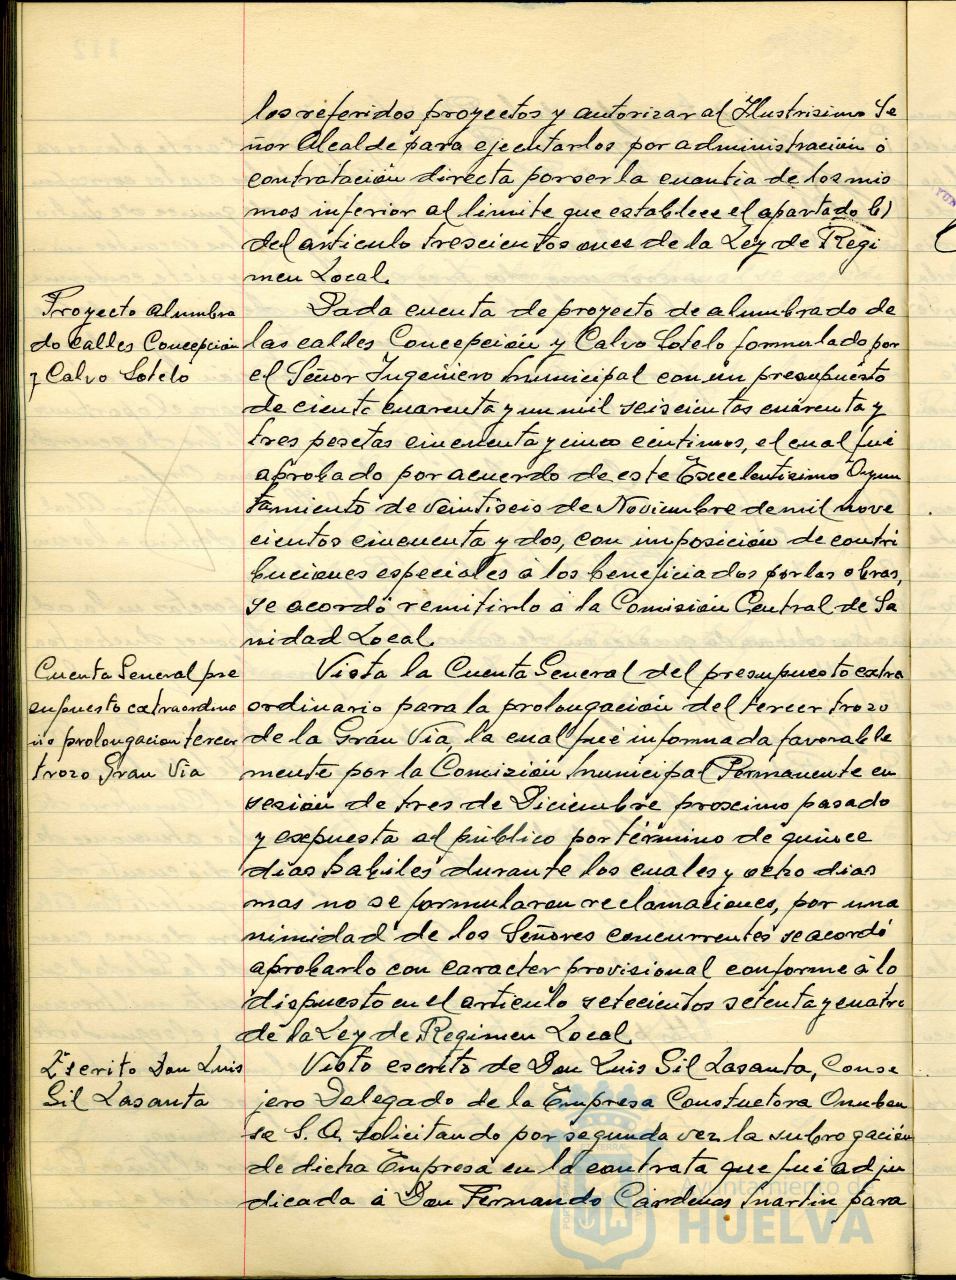 los referidos proyectos y autorizar al Ilustrisimo Se
ñor Alcalde para ejecutarlos por administración ó
contratación directa por ser la cuantia de los mis
mos inferior al limite que establece el apartado b)
del articulo trescientos once de la Ley de Regi
men Local.
Proyecto alumbra
do calles Concepción
y Calvo Sotelo
Dada cuenta de proyecto de alumbrado de
las calles Concepción y Calvo Sotelo formulado por
el Señor Ingeniero Municipal con un presupuesto
de ciento cuarenta y un mil seiscientas cuarenta y
tres pesetas cincuenta y cinco centimos, el cual fué
aprobado por acuerdo de este Excelentisimo Ayun
tamiento de veintiseis de Noviembre de mil nove
cientos cincuenta y dos, con imposición de contri
buciones especiales á los beneficiados por las obras,
se acordó remitirlo á la Comisión Central de Sa
nidad Local.
Cuenta General pre
supuesto extraordina
rio prolongacion tercer
trozo Gran Via
Vista la Cuenta General del presupuesto extra
ordinario para la prolongación del tercer trozo
de la Gran Via, la cual fué informada favorable
mente por la Comisión Municipal Permanente en
sesión de tres de Diciembre proximo pasado
y expuesta al público por término de quince
dias habiles durante los cuales y ocho dias
mas no se formularon reclamaciones, por una
nimidad de los Señores concurrentes se acordó
aprobarlo con caracter provisional conforme á lo
dispuesto en el articulo setecientos setenta y cuatro
de la Ley de Regimen Local.
2º escrito Don Luis
Gil Lasanta
Visto escrito de Don Luis Gil Lasanta, Conse
jero Delegado de la Empresa Constuctora Onuben
se S. A. solicitando por segunda vez la subrogación
de dicha Empresa en la contrata que fué adju
dicada á Don Fernando Cárdenas Martin para
Ayuntamiento de
HUELVA